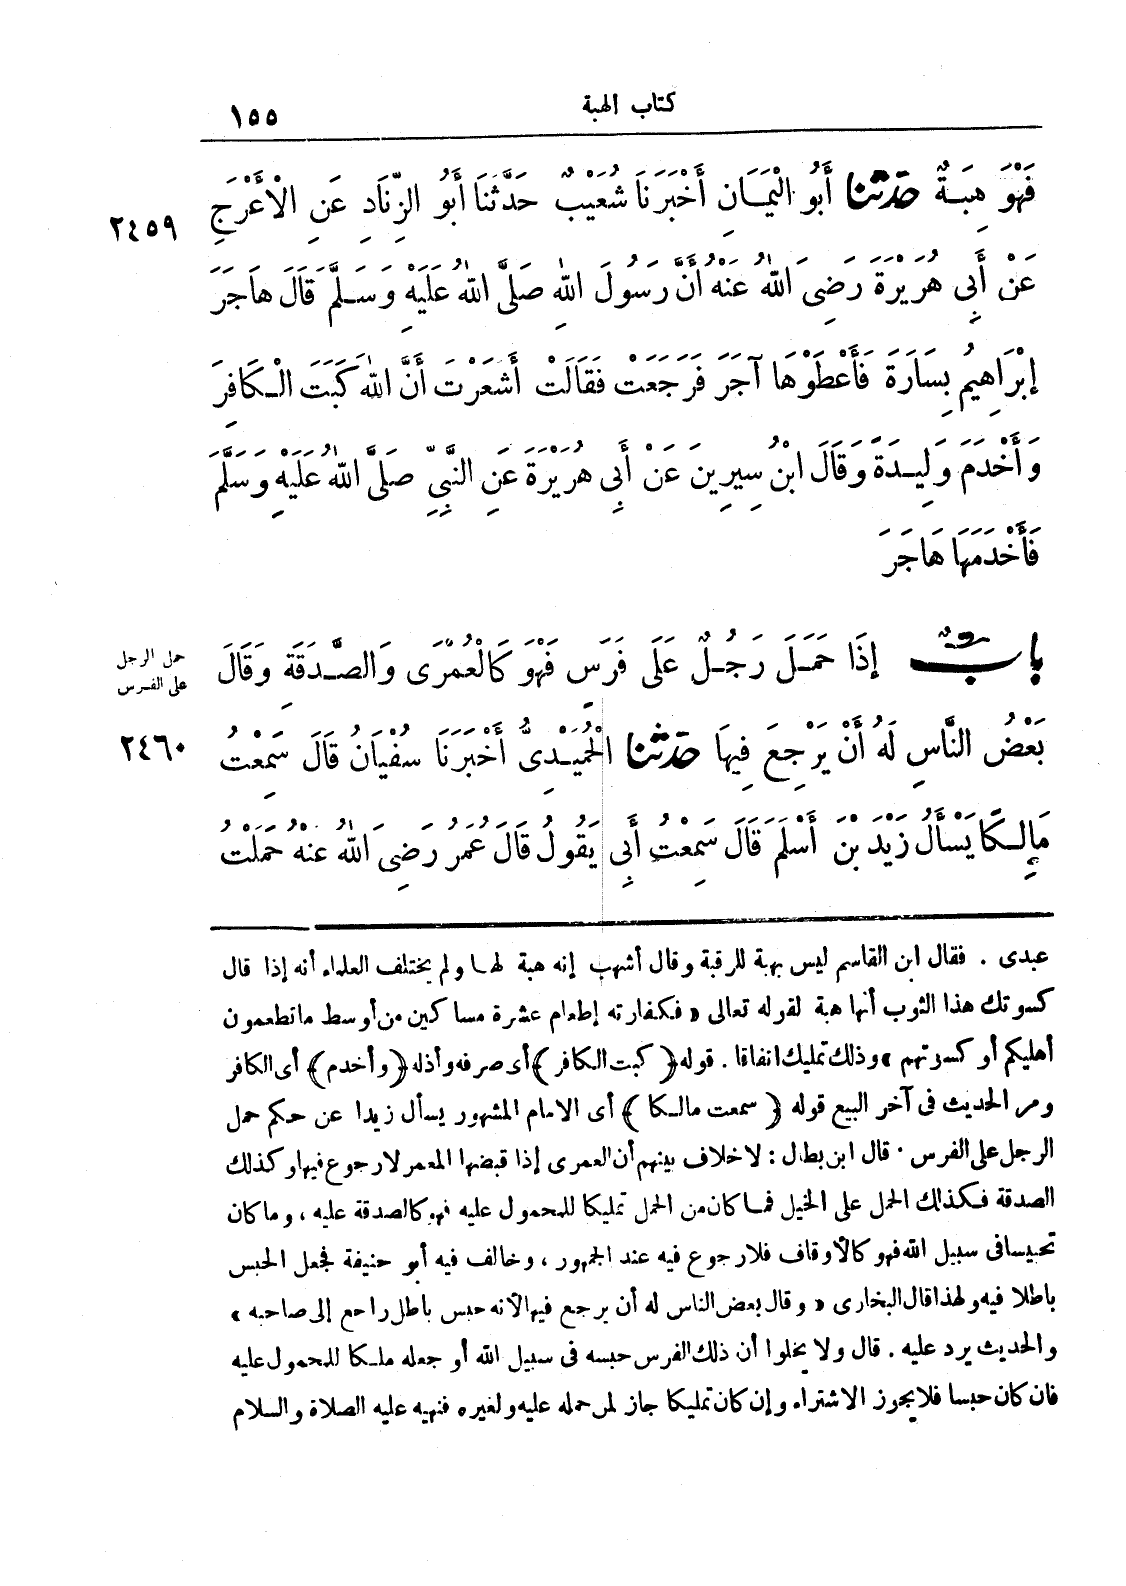 كتاب الهبة ١٥٥
فَهْوَ هِبَةٌ حدثنا أَبُو الْيَمَانِ أَخْبَرَنَا شُعَيْبٌ حَدَّثَنَا أَبُو الزِّنَادِ عَنِ الْأَعْرَجِ ٢٤٥٩
عَنْ أَبِى هُرَيْرَةَ رَضِىَ اللهُ عَنْهُ أَنَّ رَسُولَ اللهِ صَلَّى اللهُ عَلَيْهِ وَسَلَّمَ قَالَ هَاجَرَ
إِبْرَاهِيمُ بِسَارَةَ فَأَعْطَوْهَا آجَرَ فَرَجَعَتْ فَقَالَتْ أَشَعَرْتَ أَنَّ اللهَ كَبَتَ الْكَافِرَ
وَأَخْدَمَ وَلِيدَةً وَقَالَ ابْنُ سِيرِينَ عَنْ أَبِى هُرَيْرَةَ عَنِ النَّبِىِّ صَلَّى اللهُ عَلَيْهِ وَسَلَّمَ
فَأَخْدَمَهَا هَاجَرَ
بابٌ إِذَا حَمَلَ رَجُلٌ عَلَى فَرَسٍ فَهْوَ كَالْعُمْرَى وَالصَّدَقَةِ وَقَالَ
حمل الرجل
على الفرس
بَعْضُ النَّاسِ لَهُ أَنْ يَرْجِعَ فِيهَا حدثنا الْحُمَيْدِىُّ أَخْبَرَنَا سُفْيَانُ قَالَ سَمِعْتُ ٢٤٦٠
مَالِكًا يَسْأَلُ زَيْدَ بْنَ أَسْلَمَ قَالَ سَمِعْتُ أَبِى يَقُولُ قَالَ عُمَرُ رَضِىَ اللهُ عَنْهُ حَمَلْتُ
عبدى . فقال ابن القاسم ليس بهبة للرقبة وقال أشهب إنه هبة لها ولم يختلف العلماء أنه إذا قال
كسوتك هذا الثوب أنها هبة لقوله تعالى « فكفارته إطعام عشرة مساكين من أوسط ما تطعمون
أهليكم أو كسوتهم » وذلك تمليك اتفاقا . قوله ﴿ كبت الكافر ﴾ أى صرفه وأذله ﴿ وأخدم ﴾ أى الكافر
ومر الحديث فى آخر البيع قوله ﴿ سمعت مالكا ﴾ أى الامام المشهور يسأل زيدا عن حكم حمل
الرجل على الفرس . قال ابن بطال : لا خلاف بينهم أن العمرى إذا قبضها المعمر لا رجوع فيها وكذلك
الصدقة فكذلك الحمل على الخيل فما كان من الحمل تمليكا للمحمول عليه فهو كالصدقة عليه ، وما كان
تحبيسا فى سبيل الله فهو كالأوقاف فلا رجوع فيه عند الجمهور ، وخالف فيه أبو حنيفة فجعل الحبس
باطلا فيه ولهذا قال البخارى « وقال بعض الناس له أن يرجع فيها لأنه حبس باطل راجع إلى صاحبه »
والحديث يرد عليه . قال ولا يخلوا أن ذلك الفرس حبسه فى سبيل الله أو جعله ملكا للمحمول عليه
فان كان حبسا فلا يجوز الاشتراء وإن كان تمليكا جاز لمن حمله عليه ولغيره فنهيه عليه الصلاة والسلام